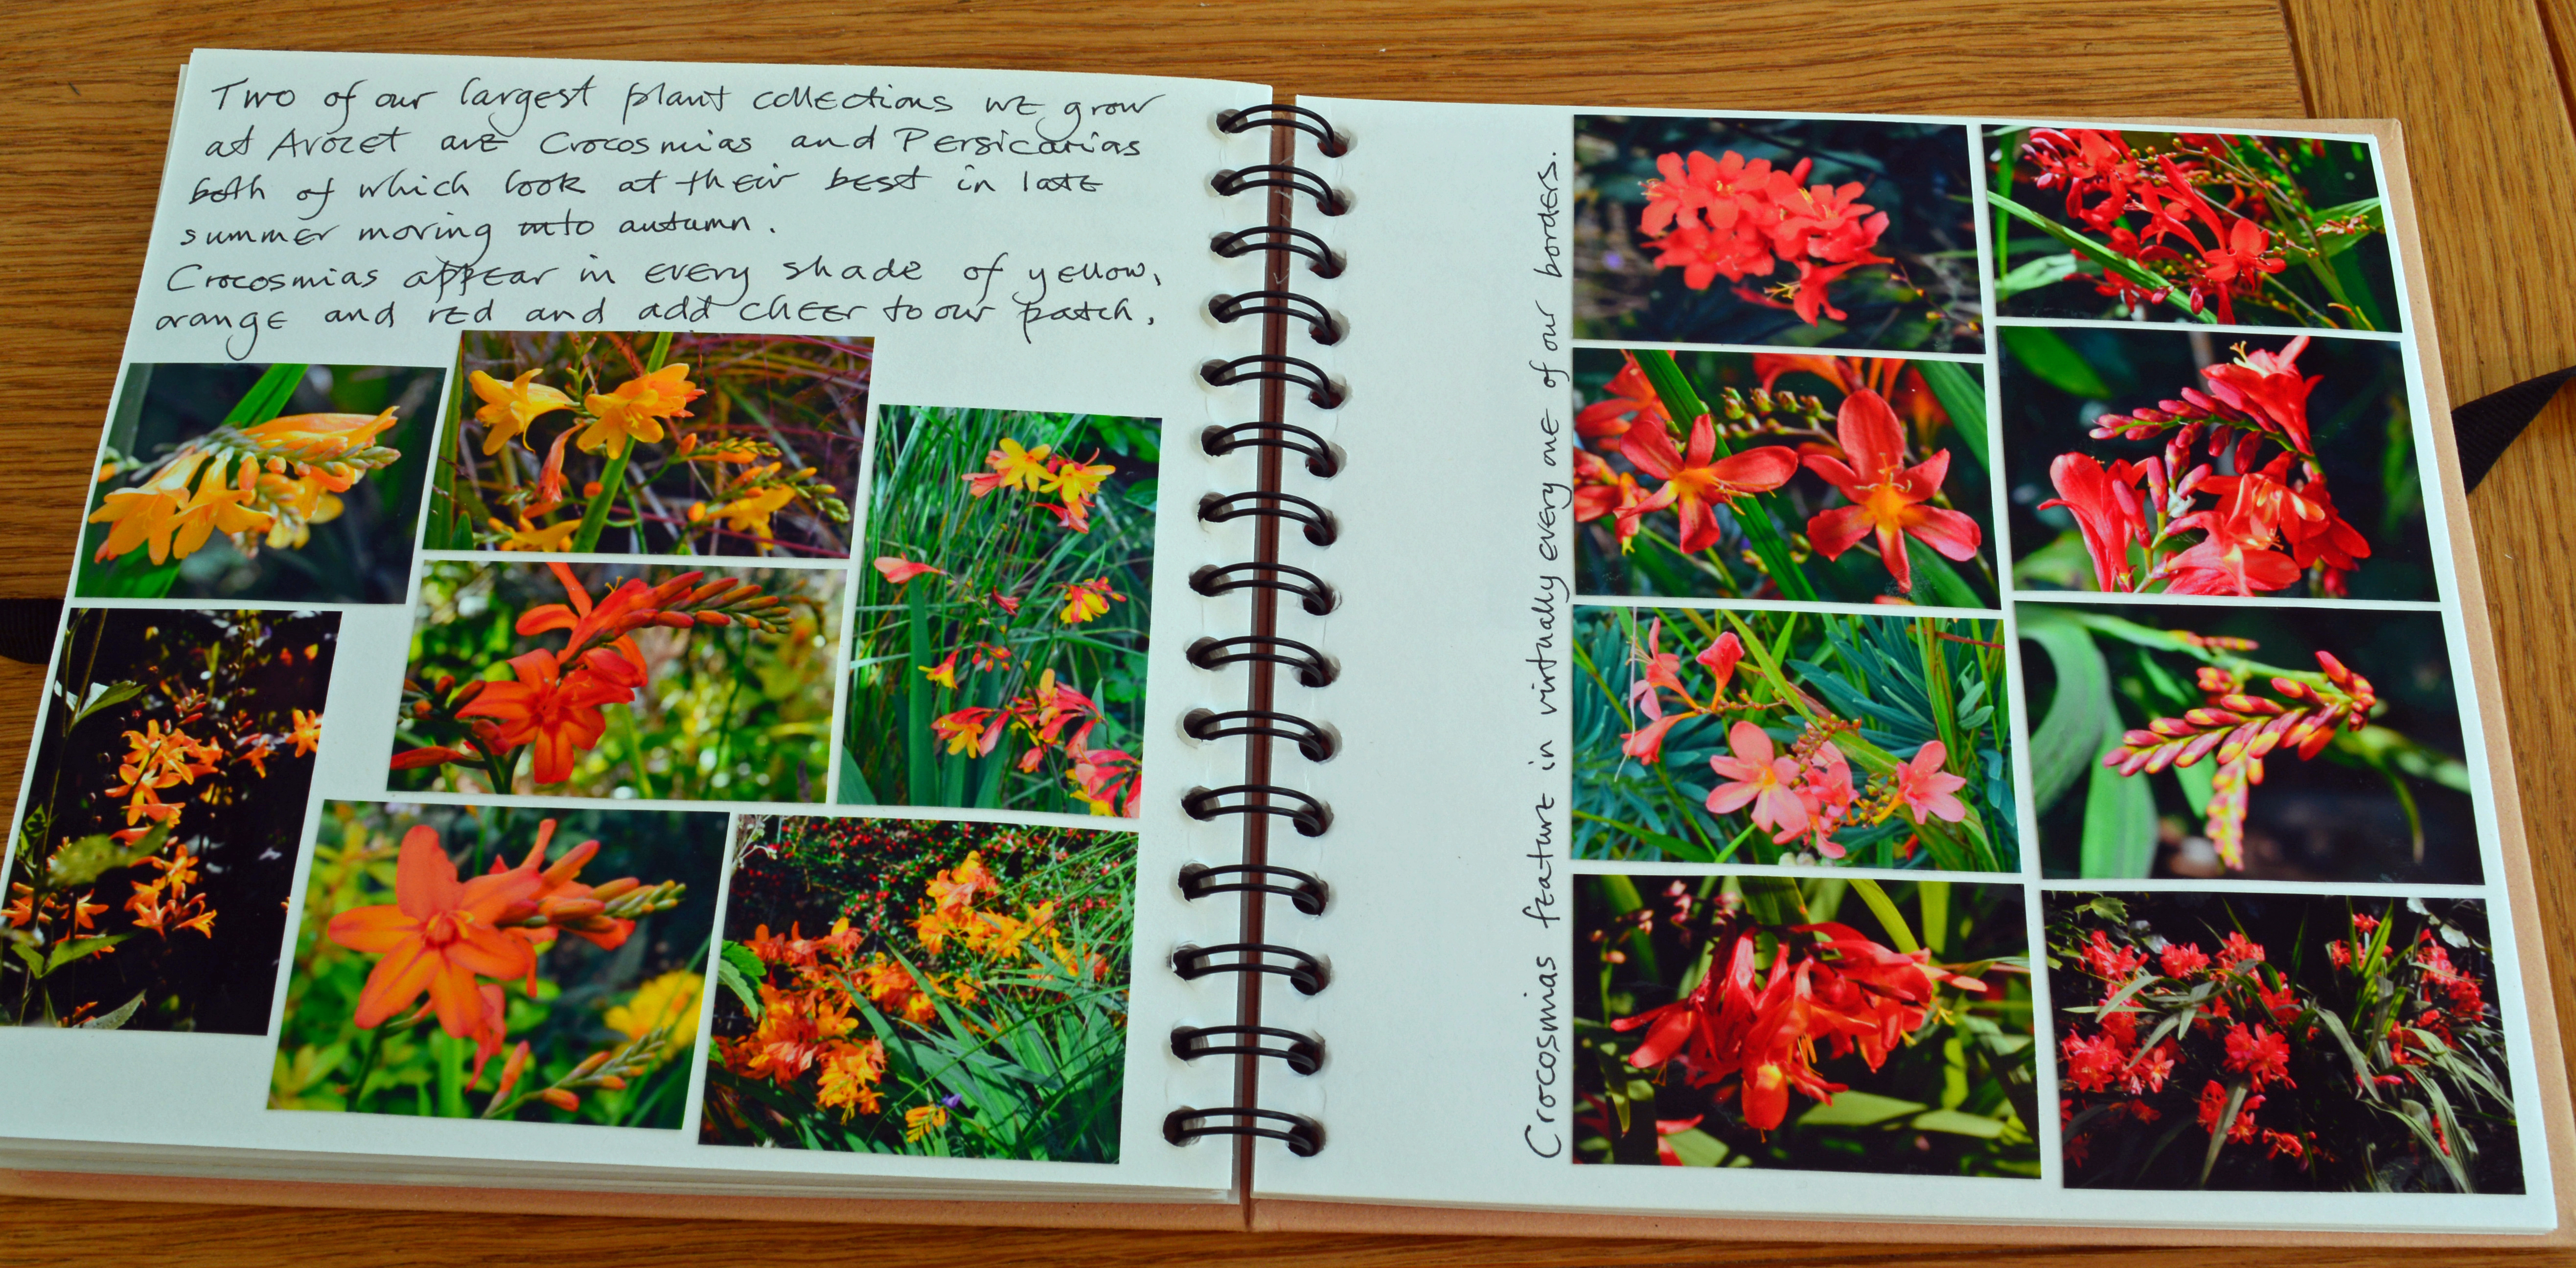 Two of our largest plant collections we grow
at Avocet are Crocosmias and Persicarias
both of which look at their best in late
summer moving into autumn.
Crocosmias appear in every shade of yellow,
orange and red and add cheer to our patch.
Crocosmias feature in virtually every one of our borders.